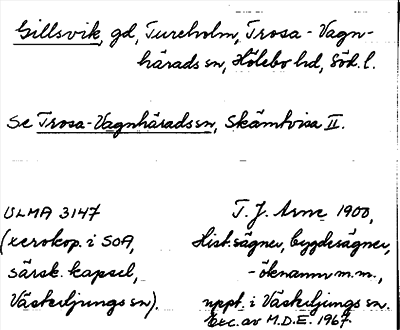 Gillsvik, gd, Tureholm, Trosa-Vagn-
härads sn, Hölebo hd, Söd. l.
Se Trosa-Vagnhärads sn, Skämtvisa II.
ULMA 3147
(xerokop. i SOA,
särsk. kapsel,
Västerljungs sn).
T. J. Arne 1900,
Hist. sägner, bygdesägner,
-öknamn m.m.,
uppt. i Västerljungs sn.
Exc. av M.D.E. 1967.